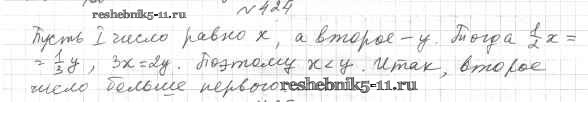 №424
reshebnik5-11.ru
Пусть I число равно x, а второе - y. Тогда 1/2 x =
= 1/3 y, 3x = 2y. Поэтому x < y. Итак, второе
число больше первого.
reshebnik5-11.ru